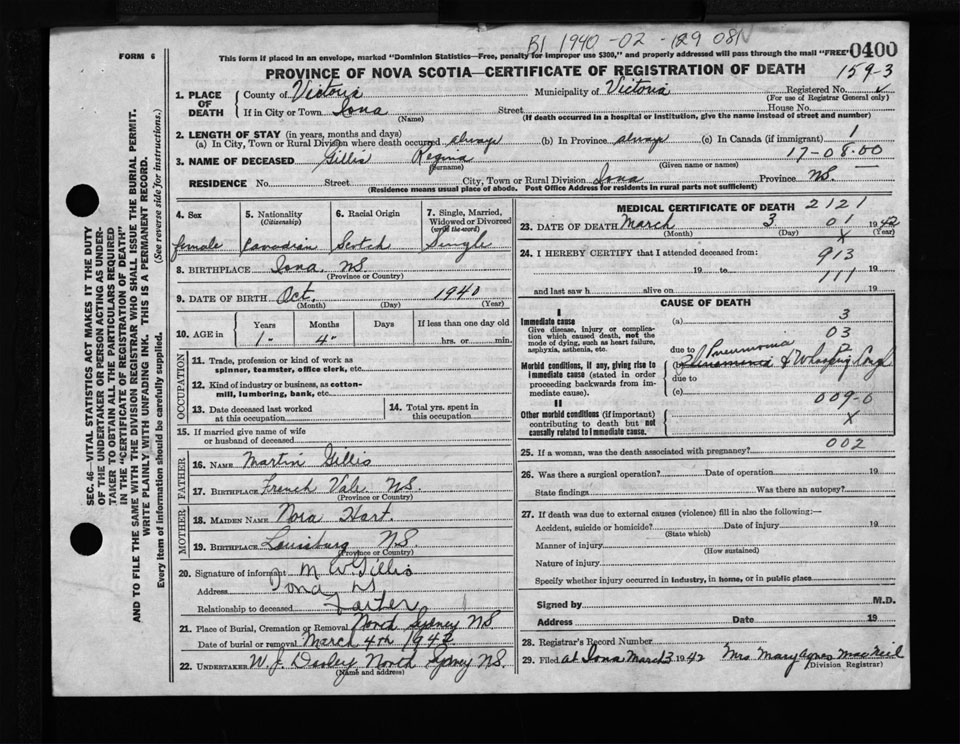 B1 1940-02-129 08N
FORM 6
This form if placed in an envelope, marked "Dominion Statistics—Free, penalty for improper use $300," and properly addressed will pass through the mail "FREE"
0400
PROVINCE OF NOVA SCOTIA—CERTIFICATE OF REGISTRATION OF DEATH
159-3
1. PLACE OF DEATH
County of Victoria Municipality of Victoria Registered No.
(For use of Registrar General only)
If in City or Town Iona Street House No.
(Name) (If death occurred in a hospital or institution, give the name instead of street and number)
2. LENGTH OF STAY (in years, months and days)
(a) In City, Town or Rural Division where death occurred always (b) In Province always (c) In Canada (if immigrant) 1
17-08.00
3. NAME OF DECEASED Gillis Regina
(Surname) (Given name or names)
RESIDENCE No. Street City, Town or Rural Division Iona Province NS.
(Residence means usual place of abode. Post Office Address for residents in rural parts not sufficient)
4. Sex
female
5. Nationality
(Citizenship)
Canadian
6. Racial Origin
Scotch
7. Single, Married, Widowed or Divorced
(write the word)
Single
8. BIRTHPLACE Iona, NS
(Province or Country)
9. DATE OF BIRTH Oct. 1940
(Month) (Day) (Year)
10. AGE in
Years Months Days If less than one day old
1" 4" hrs. or min.
OCCUPATION
11. Trade, profession or kind of work as
spinner, teamster, office clerk, etc.
12. Kind of industry or business, as cotton-
mill, lumbering, bank, etc.
13. Date deceased last worked
at this occupation
14. Total yrs. spent in
this occupation
15. If married give name of wife
or husband of deceased
FATHER
16. NAME Martin Gillis
17. BIRTHPLACE French Vale NS.
(Province or Country)
MOTHER
18. MAIDEN NAME Nora Hart.
19. BIRTHPLACE Louisburg NS
(Province or Country)
20. Signature of informant M W Gillis
Address Iona NS
Relationship to deceased Farter
21. Place of Burial, Cremation or Removal North Sydney NS
Date of burial or removal March 4th 1942
22. UNDERTAKER W. J. Dooley North Sydney NS.
(Name and address)
MEDICAL CERTIFICATE OF DEATH 2121
23. DATE OF DEATH March 3 01 1942
(Month) (Day) (Year)
X
24. I HEREBY CERTIFY that I attended deceased from:
913
19 to 111 19
and last saw h alive on 19
CAUSE OF DEATH
I
Immediate cause
Give disease, injury or complication which caused death, not the mode of dying, such as heart failure, asphyxia, asthenia, etc.
(a) 3
03
due to Pneumonia 2
Morbid conditions, if any, giving rise to immediate cause (stated in order proceeding backwards from immediate cause).
(b) & Whooping Cough
due to
(c)
009-0
II
Other morbid conditions (if important) contributing to death but not causally related to immediate cause.
X
002
25. If a woman, was the death associated with pregnancy?
26. Was there a surgical operation? Date of operation 19
State findings Was there an autopsy?
27. If death was due to external causes (violence) fill in also the following:—
Accident, suicide or homicide? Date of injury 19
(State which)
Manner of injury
(How sustained)
Nature of injury
Specify whether injury occurred in industry, in home, or in public place
Signed by M.D.
Address Date 19
28. Registrar's Record Number
29. Filed at Iona March 3 1942 Mrs Mary Agnes MacNeil
(Division Registrar)
SEC. 46—VITAL STATISTICS ACT MAKES IT THE DUTY
OF THE UNDERTAKER OR PERSON ACTING AS UNDER-
TAKER TO OBTAIN ALL THE PARTICULARS REQUIRED
IN THE "CERTIFICATE OF REGISTRATION OF DEATH"
AND TO FILE THE SAME WITH THE DIVISION REGISTRAR WHO SHALL ISSUE THE BURIAL PERMIT.
WRITE PLAINLY WITH UNFADING INK. THIS IS A PERMANENT RECORD.
Every item of information should be carefully supplied. (See reverse side for instructions.)